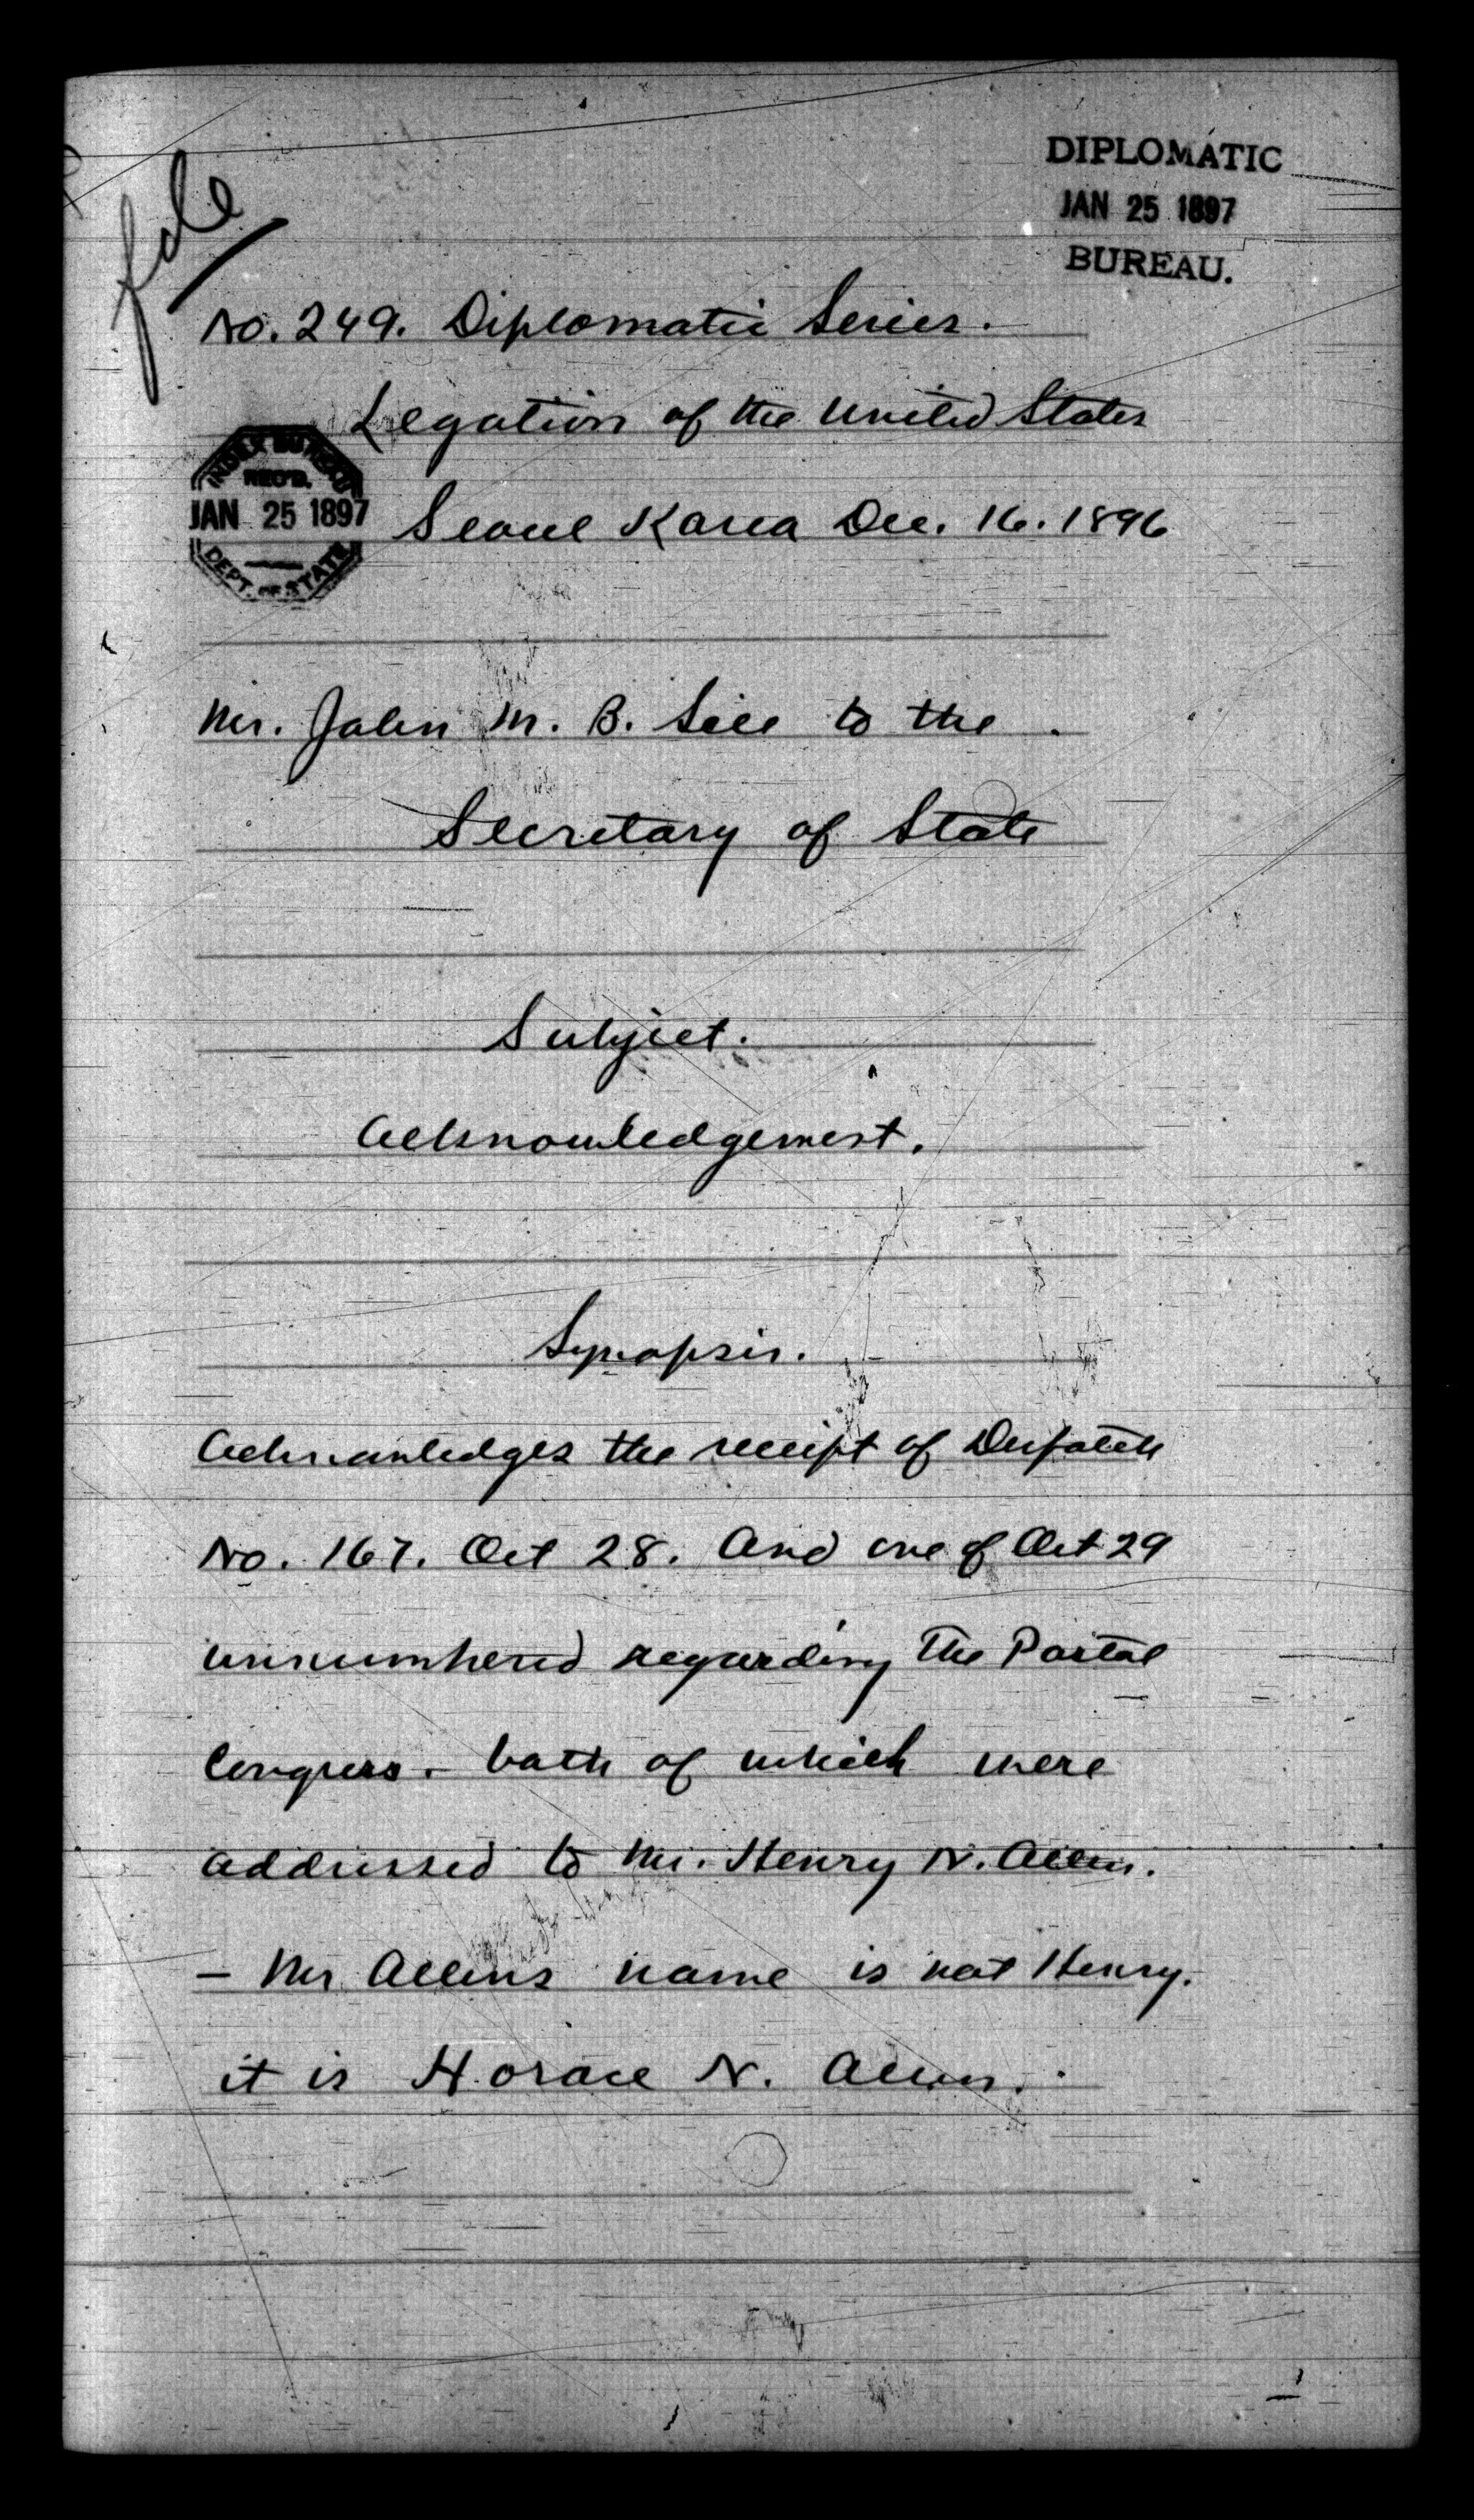 file
DIPLOMATIC
JAN 25 1897
BUREAU.
No. 249. Diplomatic Series.
Legation of the United States
INDEX BUREAU
REC'D.
JAN 25 1897
DEPT. OF STATE
Seoul Korea Dec. 16. 1896
Mr. John M. B. Sill to the
Secretary of State
Subject.
Acknowledgement.
Synopsis.
Acknowledges the receipt of Despatch
No. 167. Oct 28. And one of Oct 29
unnumbered regarding The Postal
Congress. - both of which were
addressed to Mr. Henry N. Allen.
- Mr Allens name is not Henry.
it is Horace N. Allen.